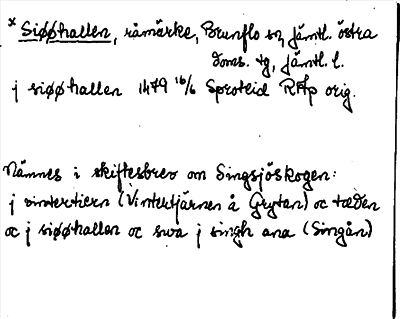 * Siøøhallen, råmärke, Brunflo sn, Jämtl. östra
doms. tg, Jämtl. l.
j siøøhallen 1479 16/6 Sproteid RAp orig.
Nämnes i skiftesbrev om Singsjöskogen:
j vintertiern (Vintertjärnen å Grytan) oc tæden
oc j siøøhallen oc swa j singh ana (Singån)